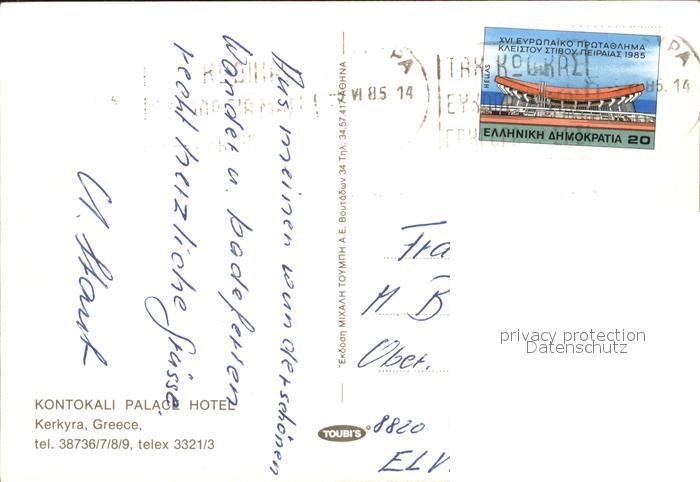 Aus meinen wunderschönen
Wander u. Badeferien
recht herzliche Grüsse.
KONTOKALI PALACE HOTEL
Kerkyra, Greece,
tel. 38736/7/8/9, telex 3321/3
Έκδοση ΜΙΧΑΛΗ ΤΟΥΜΠΗ Α.Ε. Βουτάδων 34 Τηλ. 34.57.417 ΑΘΗΝΑ
TOUBI'S
VI 85 14
ΧVI ΕΥΡΩΠΑΪΚΟ ΠΡΩΤΑΘΛΗΜΑ
ΚΛΕΙΣΤΟΥ ΣΤΙΒΟΥ ΠΕΙΡΑΙΑΣ 1985
HELLAS
ΕΛΛΗΝΙΚΗ ΔΗΜΟΚΡΑΤΙΑ 20
85. 14
Fra
M B
Ober.
8820
privacy protection
Datenschutz